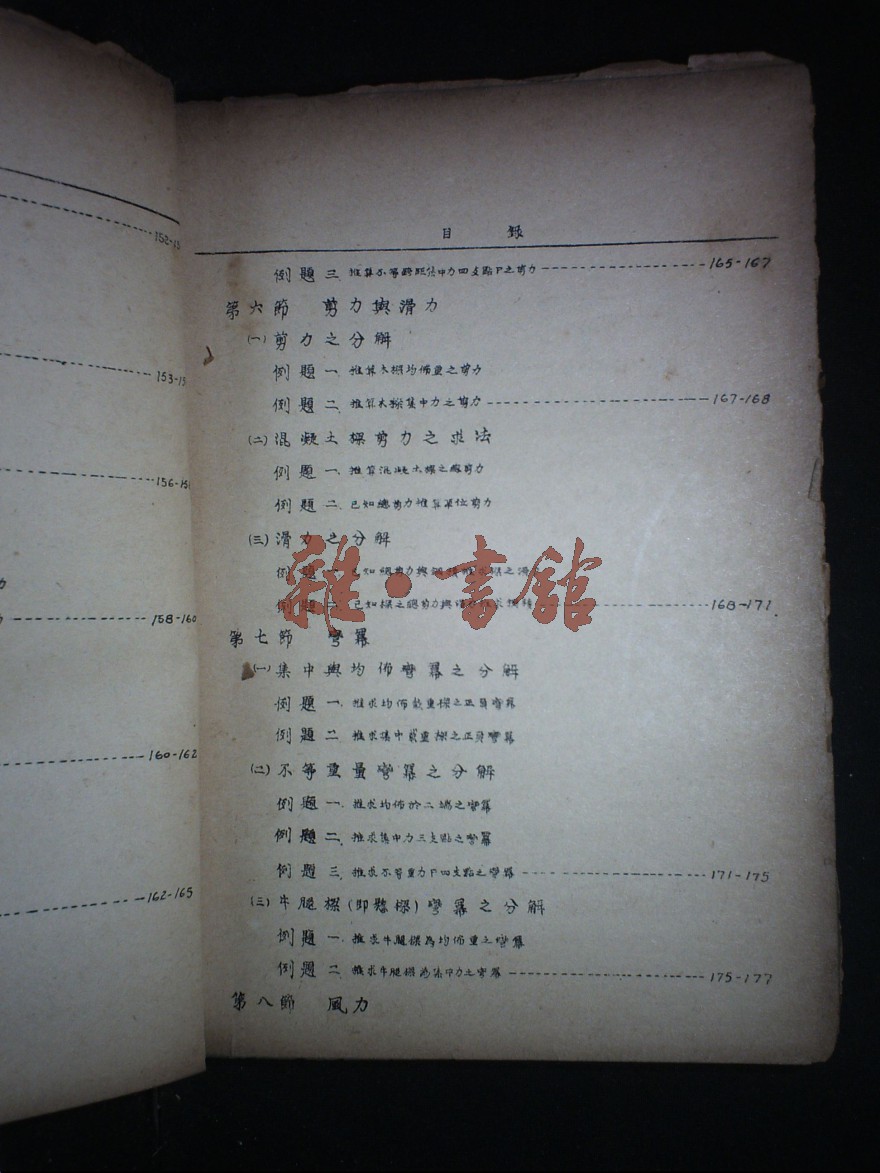 152-15
153-15
156-15
力
158-160
160-162
162-165
目 錄
例題三 推算不等跨距集中力四支點P之剪力 165-167
第六節 剪力與滑力
(一)剪力之分解
例題一、推算木樑均佈重之剪力
例題二、推算木樑集中力之剪力 167-168
(二)混凝土樑剪力之求法
例題一、推算混凝土樑之總剪力
例題二、已知總剪力推算單位剪力
(三)滑力之分解
例題一、已知總剪力與 樑之滑
例題 已知樑之總剪力與 168-171
雜·書館
第七節 彎冪
(一)集中與均佈彎冪之分解
例題一、推求均佈載重樑之正負彎冪
例題二、推求集中載重樑之正負彎冪
(二)不等重量彎冪之分解
例題一、推求均佈於二端之彎冪
例題二、推求集中力三支點之彎冪
例題三、推求不等重力P四支點之彎冪 171-175
(三)牛腿樑(即懸樑)彎冪之分解
例題一、推求牛腿樑為均佈重之彎冪
例題二、推求牛腿樑為集中力之彎冪 175-177
第八節 風力